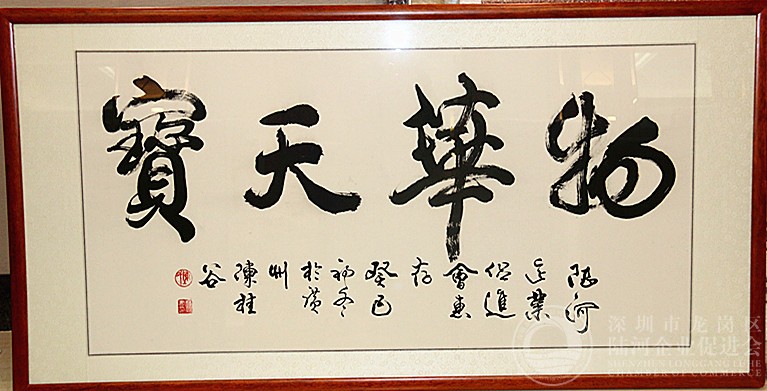 物華天寶
陸河
企業
促進
會惠
存
癸巳
初冬
於廣
州
陳桂
谷
深圳市龙岗区
陆河企业促进会
SHENZHEN LONGGANG LUHE
CHAMBER OF COMMERCE